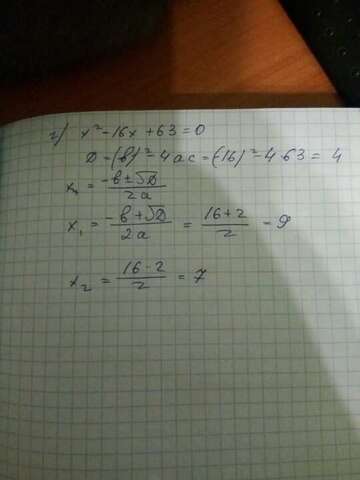 г) x² - 16x + 63 = 0
D = (b)² - 4ac = (-16)² - 4·63 = 4
x₁ = (-b ± √D) / 2a
x₁ = (-b + √D) / 2a = (16 + 2) / 2 - 9
x₂ = (16 - 2) / 2 = 7